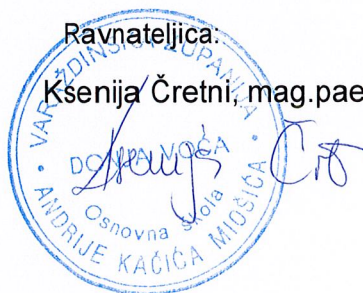 Ravnateljica:
Ksenija Čretni, mag.pae
VARAŽDINSKA ŽUPANIJA
DONJA VOĆA
Osnovna škola
ANDRIJE KAČIĆA MIOŠIĆA